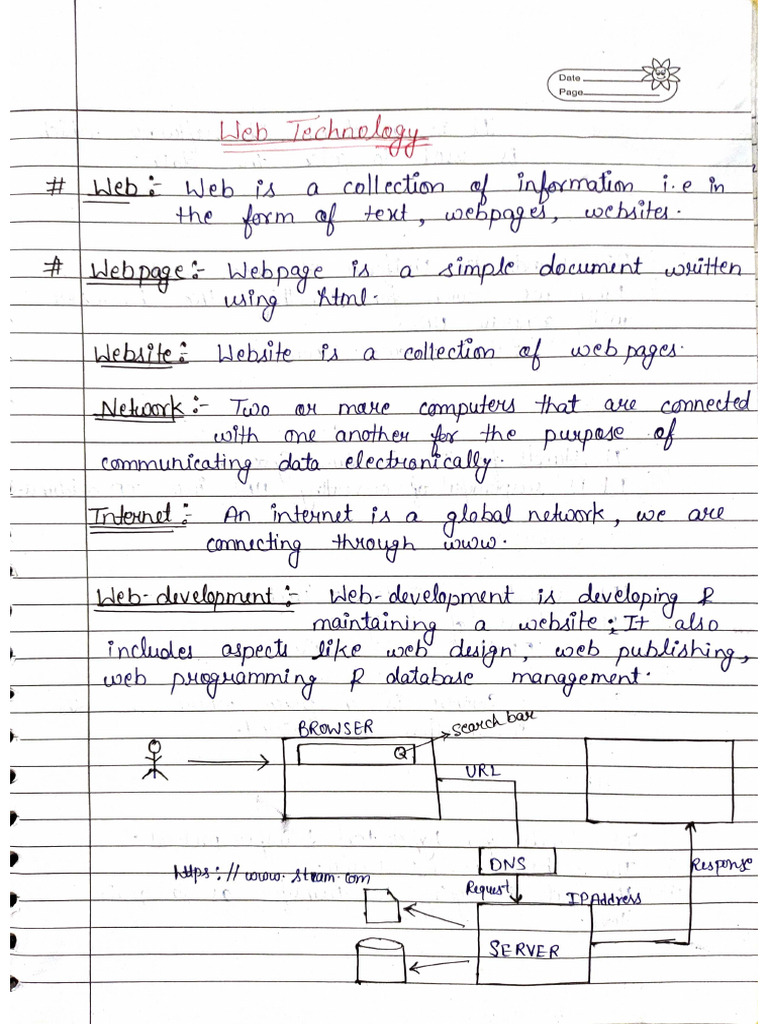 Date
Page
Web Technology
# Web :- Web is a collection of information i.e in
the form of text, webpages, websites.
# Webpage :- Webpage is a simple document written
using html.
Website :- Website is a collection of web pages.
Network :- Two or more computers that are connected
with one another for the purpose of
communicating data electronically.
Internet :- An internet is a global network, we are
connecting through www.
Web-development :- Web-development is developing &
maintaining a website; It also
includes aspects like web design, web publishing,
web programming & database management.
BROWSER
Search bar
URL
DNS
Response
https://www.steam.com
Request
IP Address
SERVER